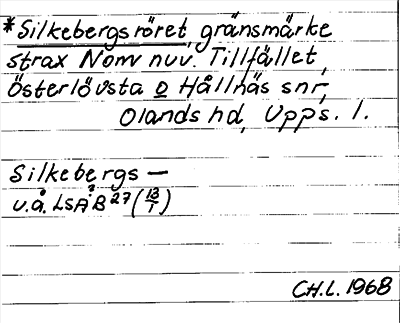 *Silkebergsröret, gränsmärke
strax Norr nuv. Tillfället,
Österlövsta o Hållnäs snr,
Olands hd, Upps. l.
Silkebergs –
u.å. LSA B 27 (13/1)
CH.L. 1968